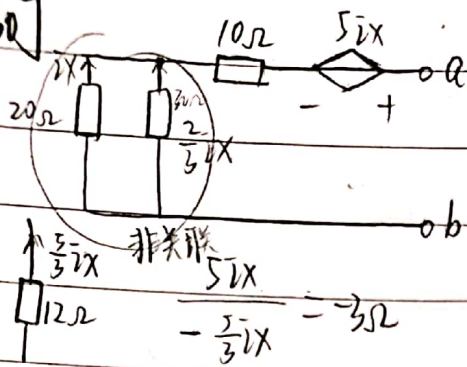 10Ω 5ix
ix
20Ω 30Ω
2/3 ix
- +
a
b
非关联
5/3 ix
12Ω
5ix / (-5/3 ix) = -3Ω